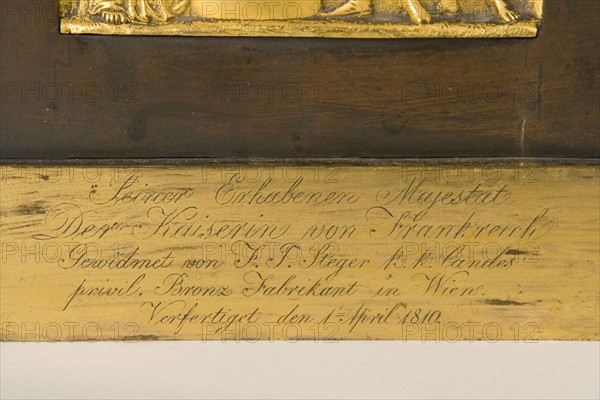 Seiner Erhabenen Majestät
Der Kaiserin von Frankreich
Gewidmet von F. P. Steger k. k. Landes
privil. Bronz Fabrikant in Wien
Verfertiget den 1= April 1810.